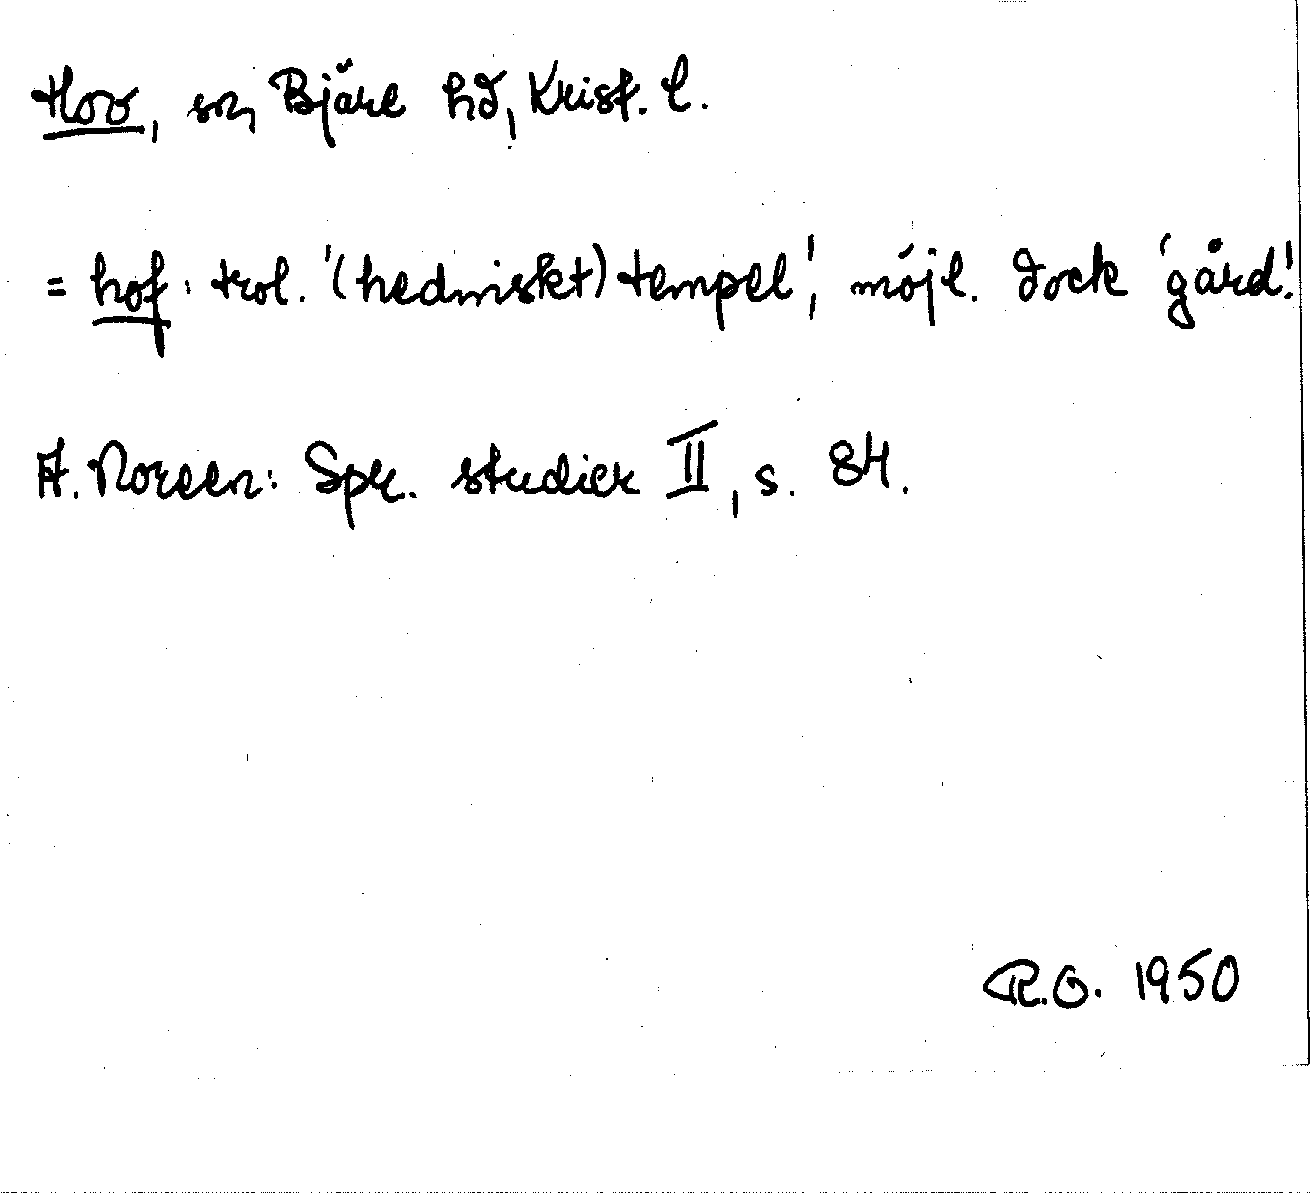 Hov, sn, Bjäre hd, Krist. l.
= hof, trol. '(hedniskt) tempel', möjl. dock 'gård'.
A. Noreen: Spr. studier II, s. 84.
R.O. 1950